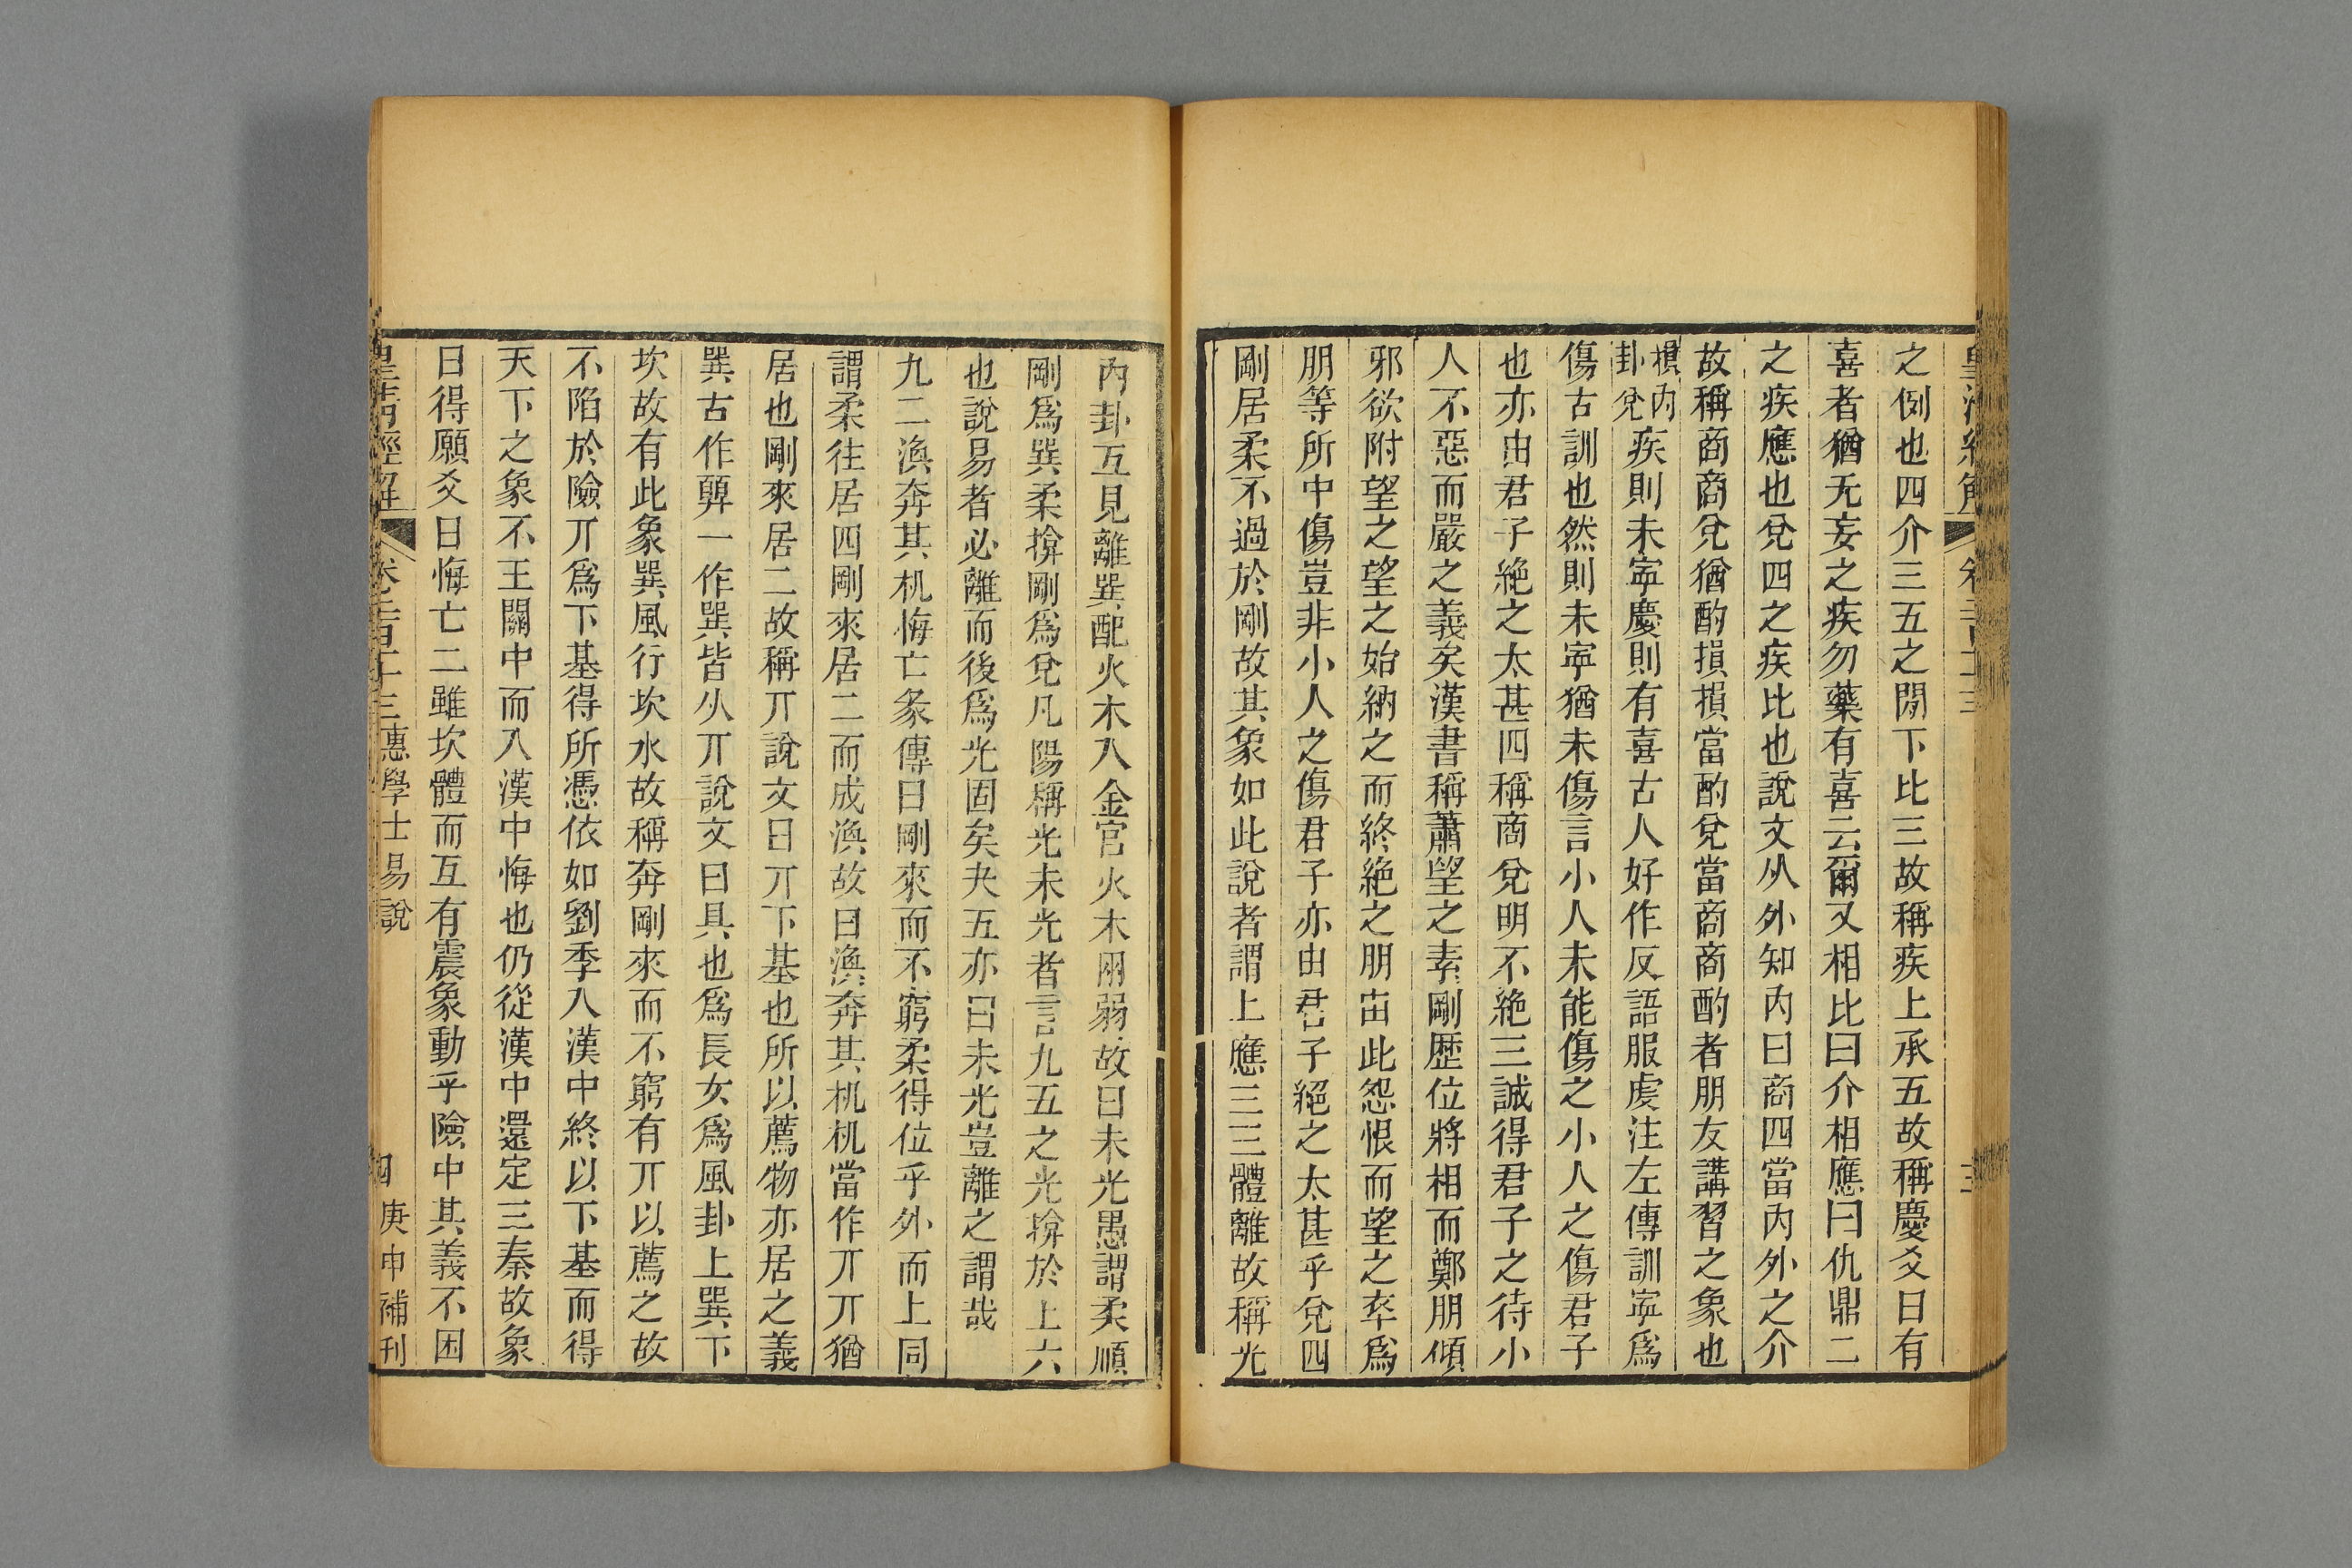 之例也四介三五之閒下比三故稱疾上承五故稱慶爻曰有
喜者猶无妄之疾勿藥有喜云爾又相比曰介相應曰仇鼎二
之疾應也兌四之疾比也說文从外知內曰商四當內外之介
故稱商商兌猶酌損損當酌兌當商商酌者朋友講習之象也
損內卦兌疾則未寧慶則有喜古人好作反語服虔注左傳訓寧爲
傷古訓也然則未寧猶未傷言小人未能傷之小人之傷君子
也亦由君子絶之太甚四稱商兌明不絶三誠得君子之待小
人不惡而嚴之義矣漢書稱蕭望之素剛歴位將相而鄭朋傾
邪欲附望之望之始納之而終絶之朋由此怨恨而望之卒爲
朋等所中傷豈非小人之傷君子亦由君子絕之太甚乎兌四
剛居柔不過於剛故其象如此說者謂上應三三體離故稱光
內卦互見離巽配火木入金宫火木囚弱故曰未光愚謂柔順
剛爲巽柔揜剛爲兌凡陽稱光未光者言九五之光揜於上六
也說易者必離而後爲光固矣夬五亦曰未光豈離之謂哉
九二渙奔其机悔亡彖傳曰剛來而不窮柔得位乎外而上同
謂柔往居四剛來居二而成渙故曰渙奔其机机當作丌丌猶
居也剛來居二故稱丌說文曰丌下基也所以薦物亦居之義
巽古作顨一作巽皆从丌說文曰具也爲長女爲風卦上巽下
坎故有此象巽風行坎水故稱奔剛來而不窮有丌以薦之故
不陷於險丌爲下基得所憑依如劉季入漢中終以下基而得
天下之象不王關中而入漢中悔也仍從漢中還定三秦故象
曰得願爻曰悔亡二雖坎體而互有震象動乎險中其義不困
皇清經解 卷二百十三 惠學士易說 四 庚申補刊